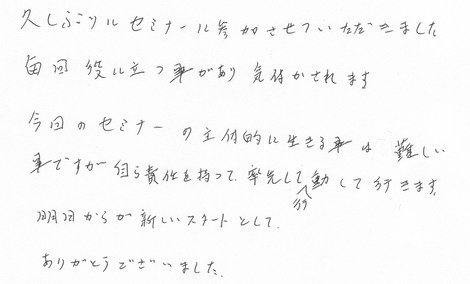 久しぶりにセミナーに参加させていただきました
毎回役に立つ事があり気付かされます
今回のセミナーの主体的に生きる事は難しい
事ですが自ら責任を持って、率先して行動して行きます。
明日からが新しいスタートとして、
ありがとうございました。